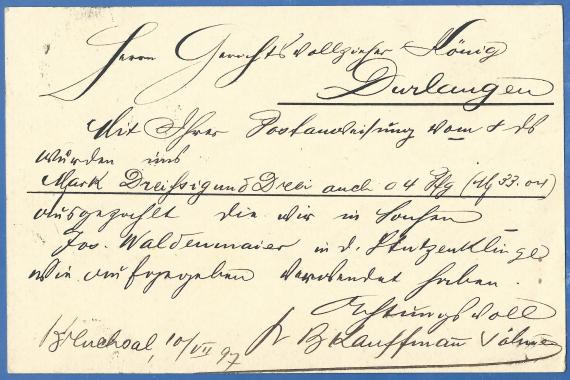 Herrn Gerichtsvollzieher König
Durlangen
Mit Ihrer Postanweisung vom 8 ds
wurden uns
Mark Dreissig und Drei auch 04 Pfg (M 33.04)
ausgezahlt die wir in Sachen
Jos. Waldenmaier in d.
wie aufgegeben verwendet haben.
Achtungsvoll
10/VII 97 B Kauffmann Söhne